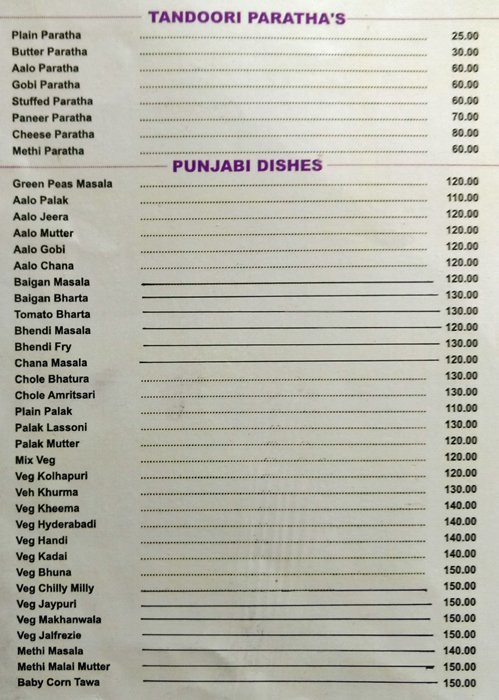 TANDOORI PARATHA'S
Plain Paratha 25.00
Butter Paratha 30.00
Aalo Paratha 60.00
Gobi Paratha 60.00
Stuffed Paratha 60.00
Paneer Paratha 70.00
Cheese Paratha 80.00
Methi Paratha 60.00
PUNJABI DISHES
Green Peas Masala 120.00
Aalo Palak 110.00
Aalo Jeera 120.00
Aalo Mutter 120.00
Aalo Gobi 120.00
Aalo Chana 120.00
Baigan Masala 120.00
Baigan Bharta 130.00
Tomato Bharta 130.00
Bhendi Masala 120.00
Bhendi Fry 130.00
Chana Masala 120.00
Chole Bhatura 130.00
Chole Amritsari 130.00
Plain Palak 110.00
Palak Lassoni 130.00
Palak Mutter 120.00
Mix Veg 120.00
Veg Kolhapuri 120.00
Veh Khurma 130.00
Veg Kheema 140.00
Veg Hyderabadi 140.00
Veg Handi 140.00
Veg Kadai 140.00
Veg Bhuna 150.00
Veg Chilly Milly 150.00
Veg Jaypuri 150.00
Veg Makhanwala 150.00
Veg Jalfrezie 150.00
Methi Masala 140.00
Methi Malai Mutter 150.00
Baby Corn Tawa 150.00